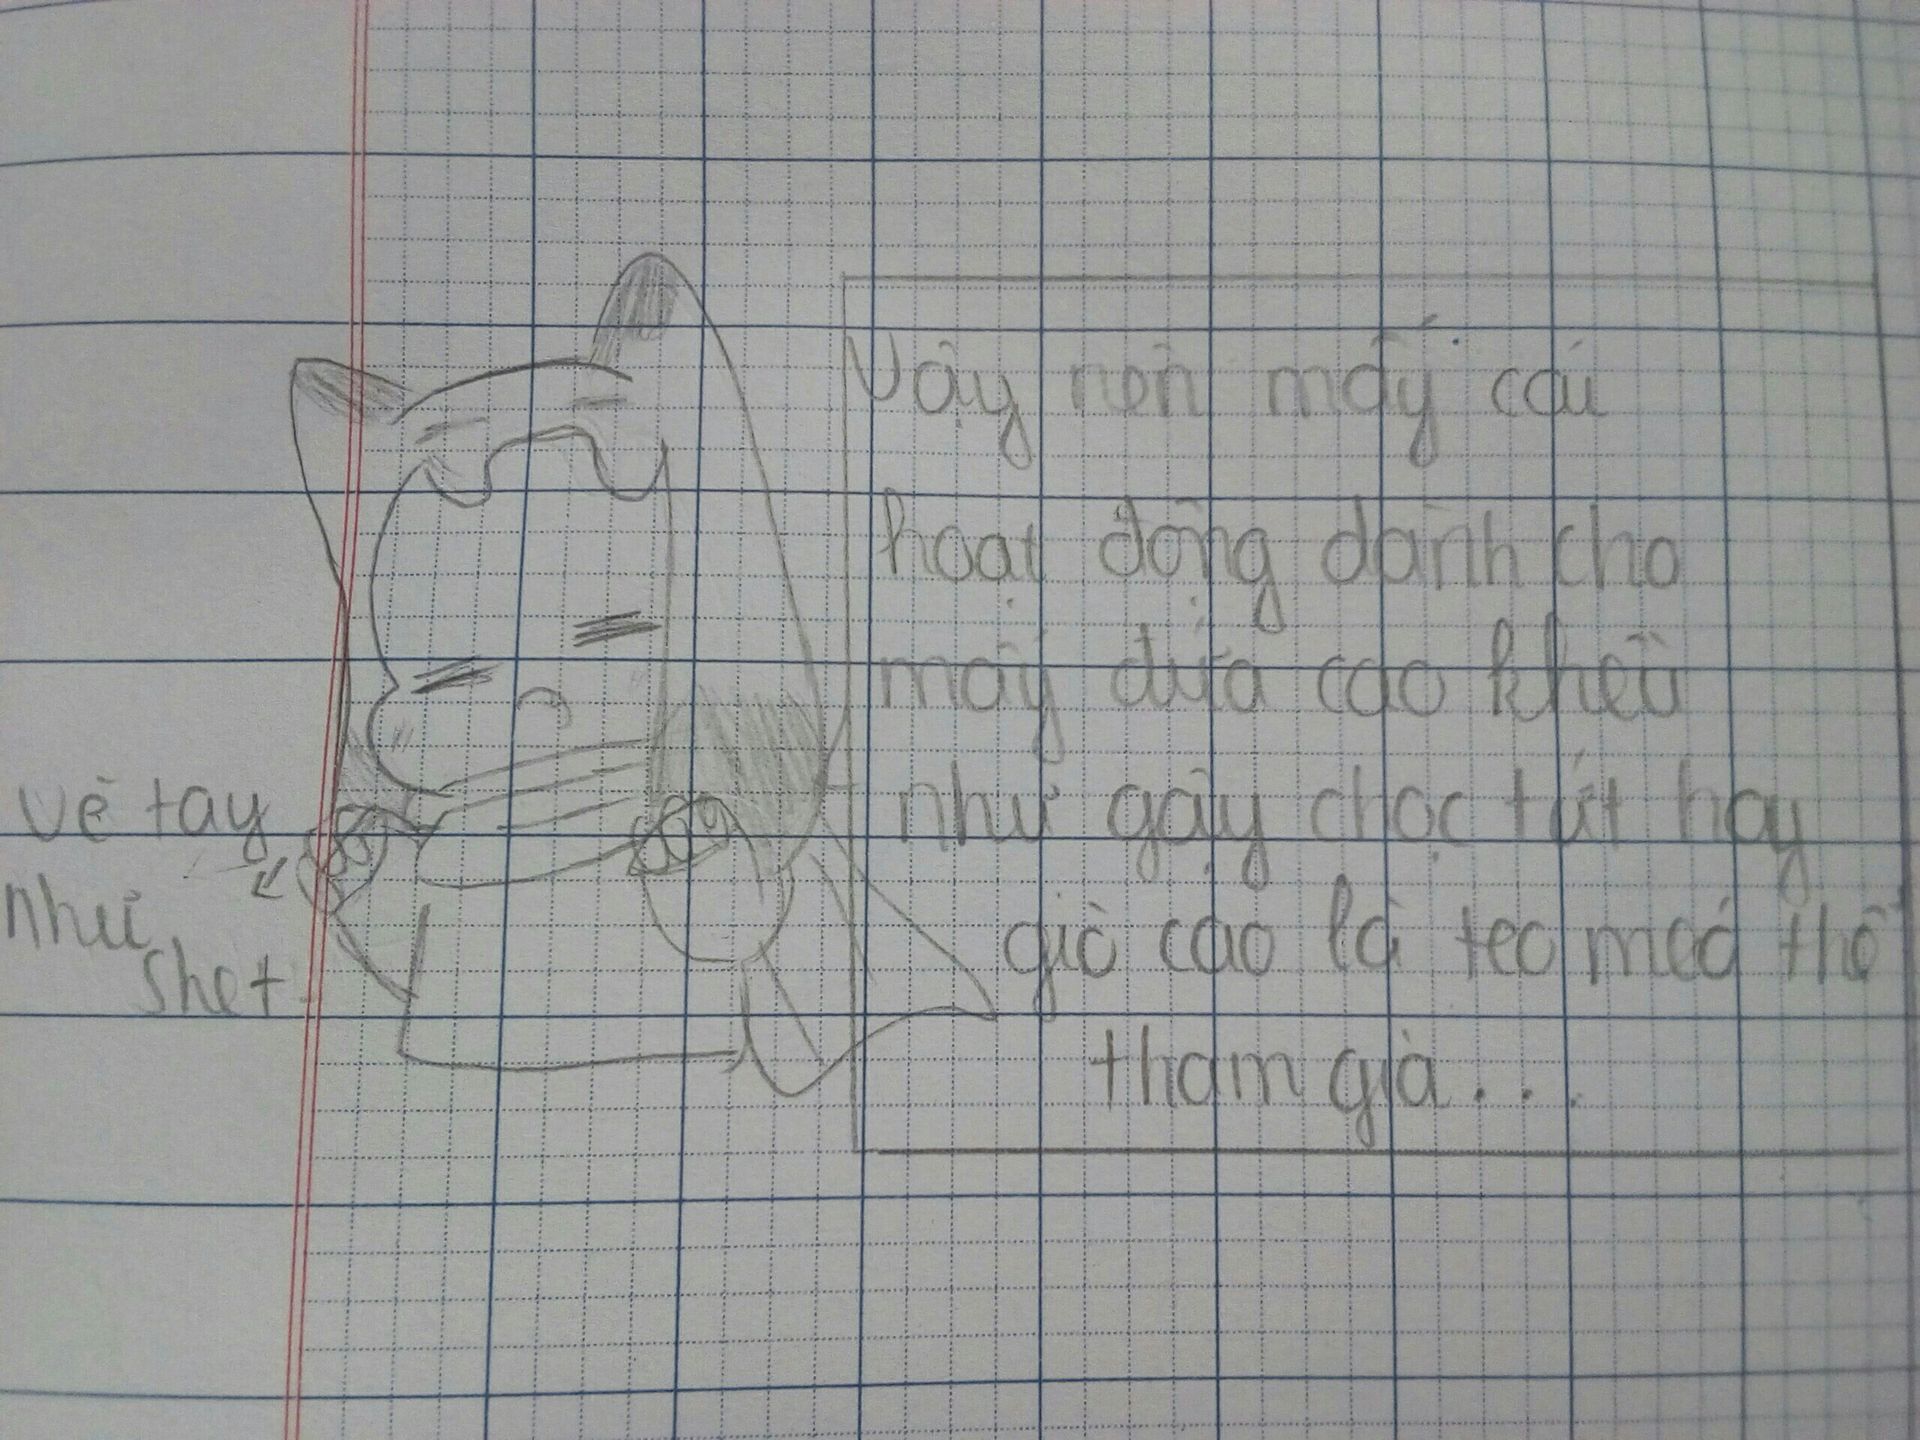 Vậy nên mấy cái
hoạt động dành cho
mấy đứa cao khều
như gậy chọc cứt hay
giò cao là teo méo thể
tham gia...
vẽ tay
như
shet